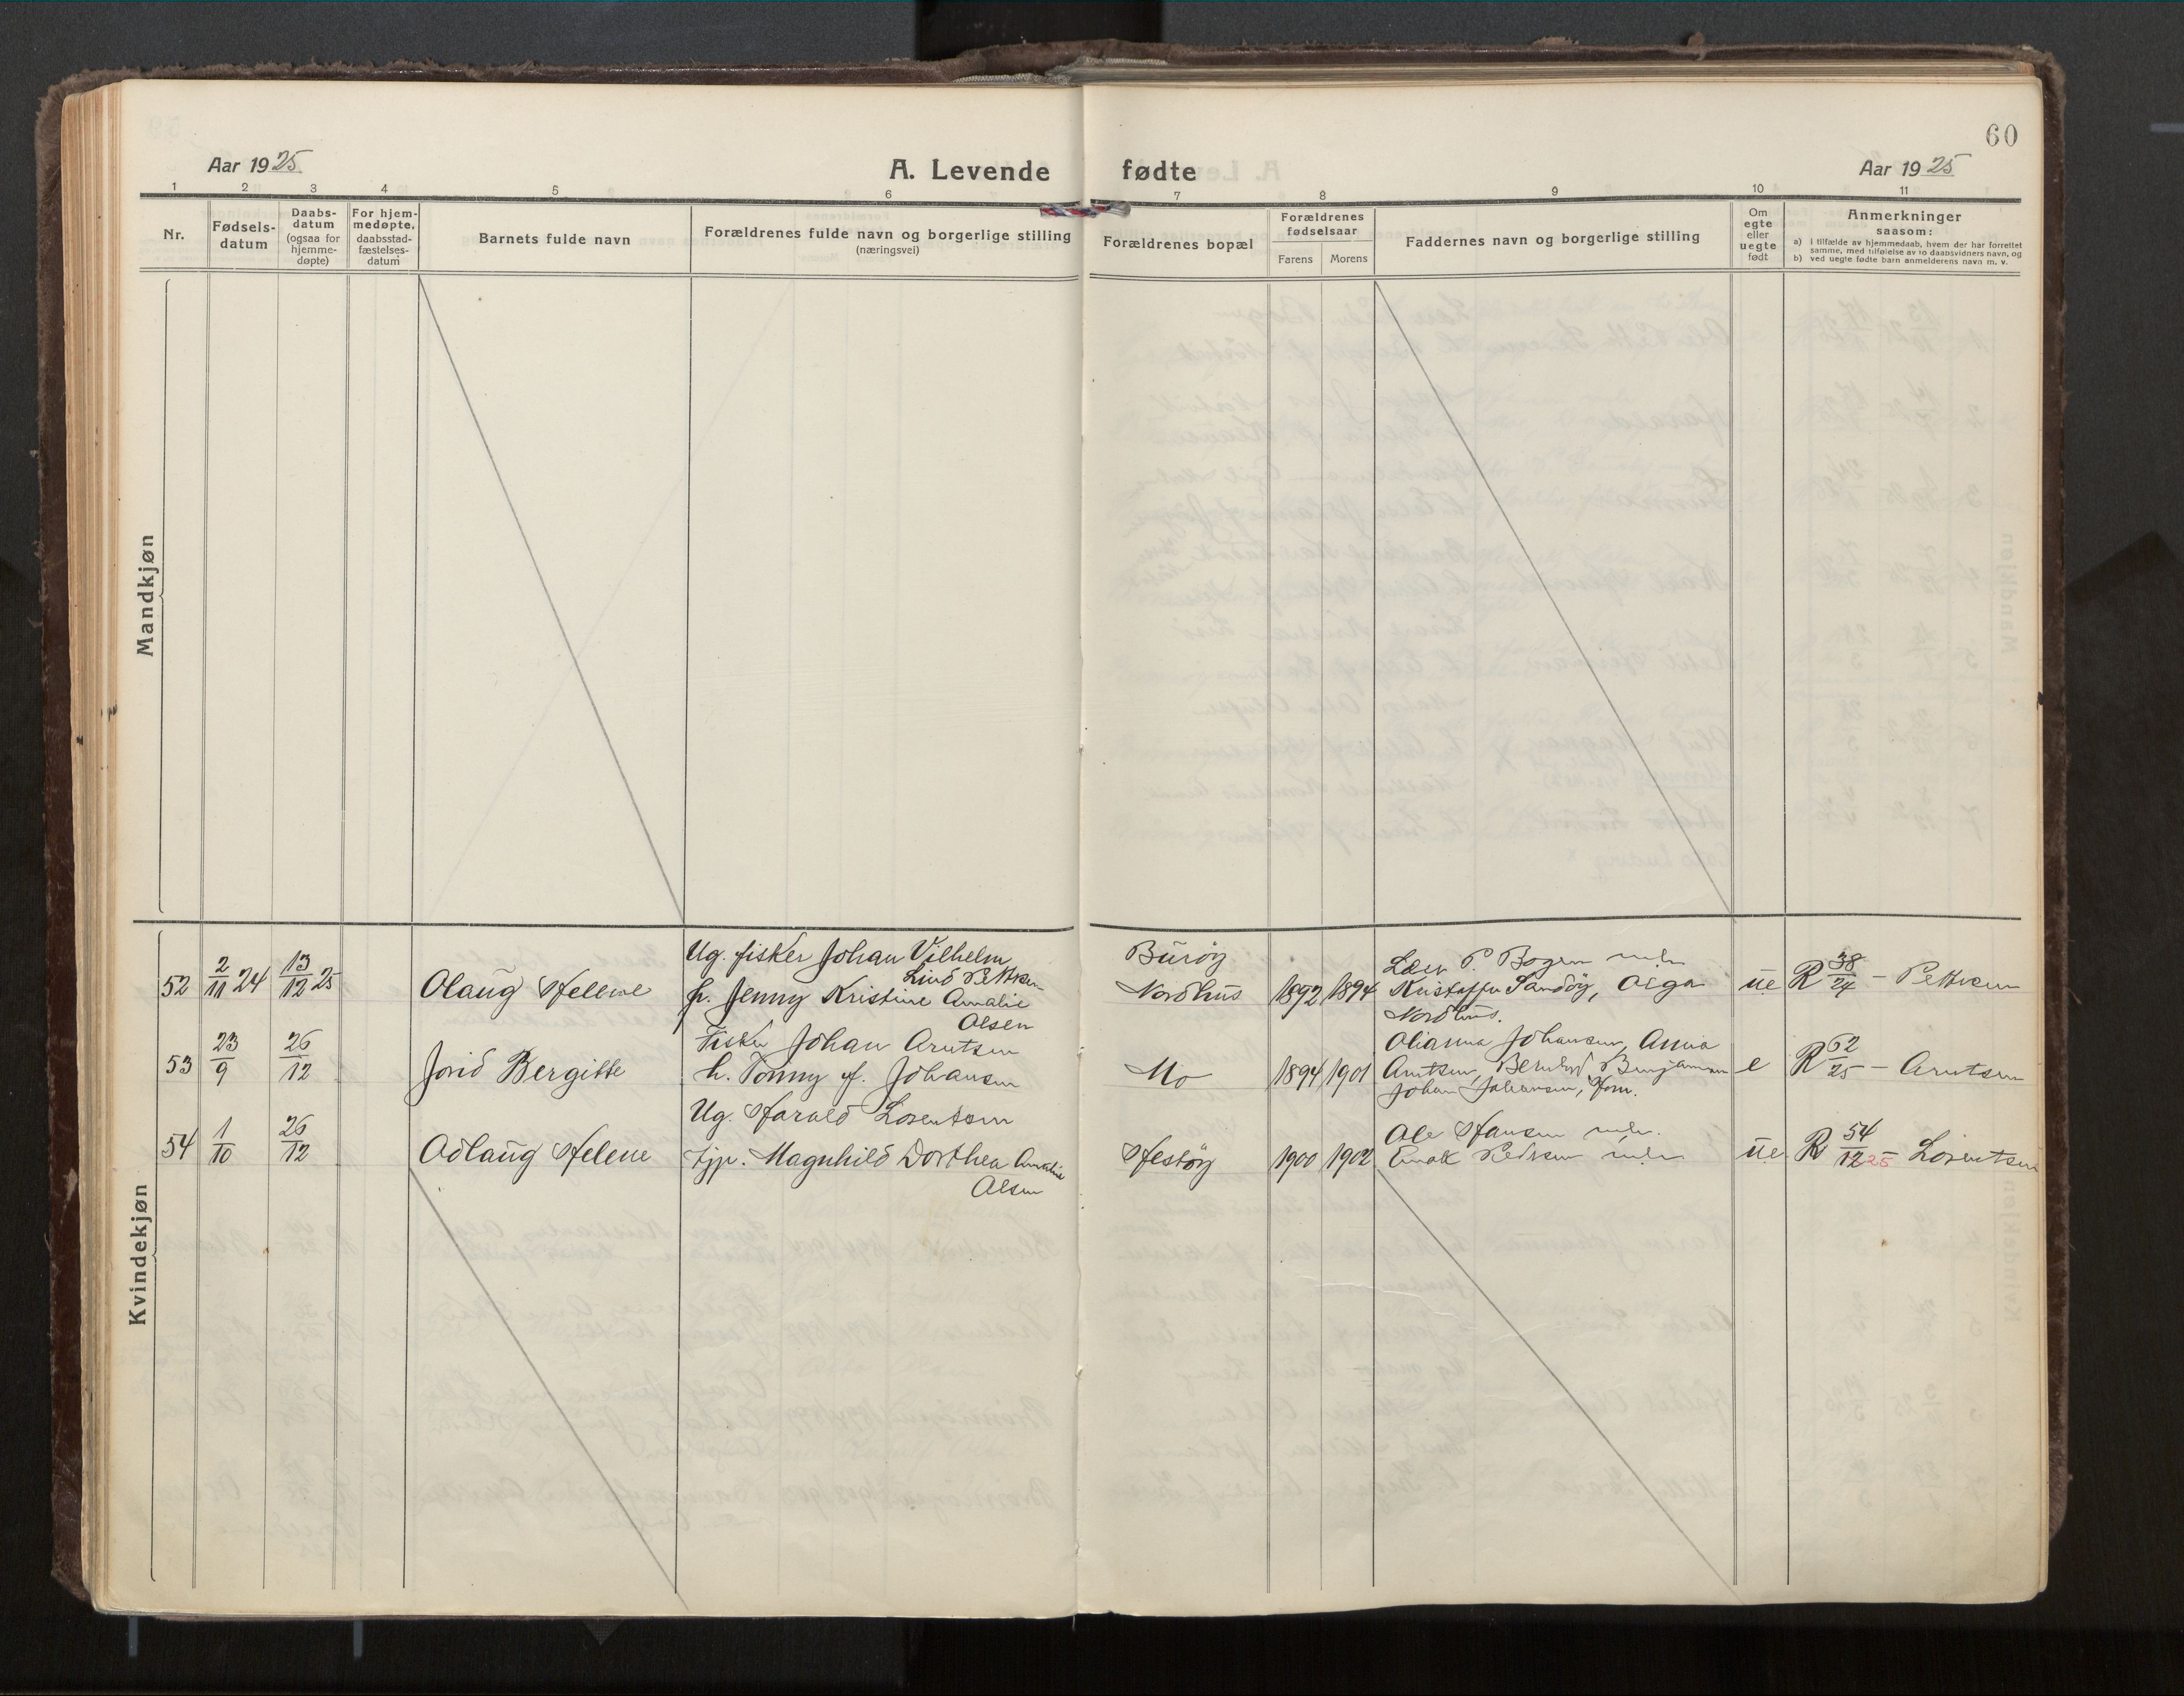 60
Aar 1925
A. Levende fødte
Aar 1925
1 2 3 4 5 6 7 8 9 10 11
Nr.
Fødsels-
datum
Daabs-
datum
(ogsaa for
hjemme-
døpte)
For hjem-
medøpte,
daabsstad-
fæstelses-
datum
Barnets fulde navn
Forældrenes fulde navn og borgerlige stilling
(næringsvei)
Forældrenes bopæl
Forældrenes
fødselsaar
Farens Morens
Faddernes navn og borgerlige stilling
Om
egte
eller
uegte
født
Anmerkninger
saasom:
a) i tilfælde av hjemmedaab, hvem der har forrettet
samme, med tilføielse av to daabsvidners navn, og
b) ved uegte fødte barn anmelderens navn m. v.
Mandkjøn
Kvindekjøn
52 2/11 24 13/12 25 Olaug Helene
Ug. fisker Johan Vilhelm
Lind Pettersen
Jenny Kristine Amalie
Olsen
Burøy
Nordhus
1892 1894
P. Bogen
Kristoffer Sandöy, Olga
Nordhus.
ue R 38/24 - Pettersen
53 23/9 26/12 Jorid Bergitte
Fisker Johan Arntsen
h. Tonny f. Johansen
Mo
1894 1901
Olianna Johansen, Anna
Arntsen, Benjaminsen
Johan Johansen,
e R 62/25 - Arntsen
54 1/10 26/12 Odlaug Helene
Ug. Harald Lorentsen
tjp. Magnhild Dorthea Amalie
Olsen
Hestöy
1900 1902
Ole Hansen
Pedersen
ue R 54/12 25 - Lorentsen